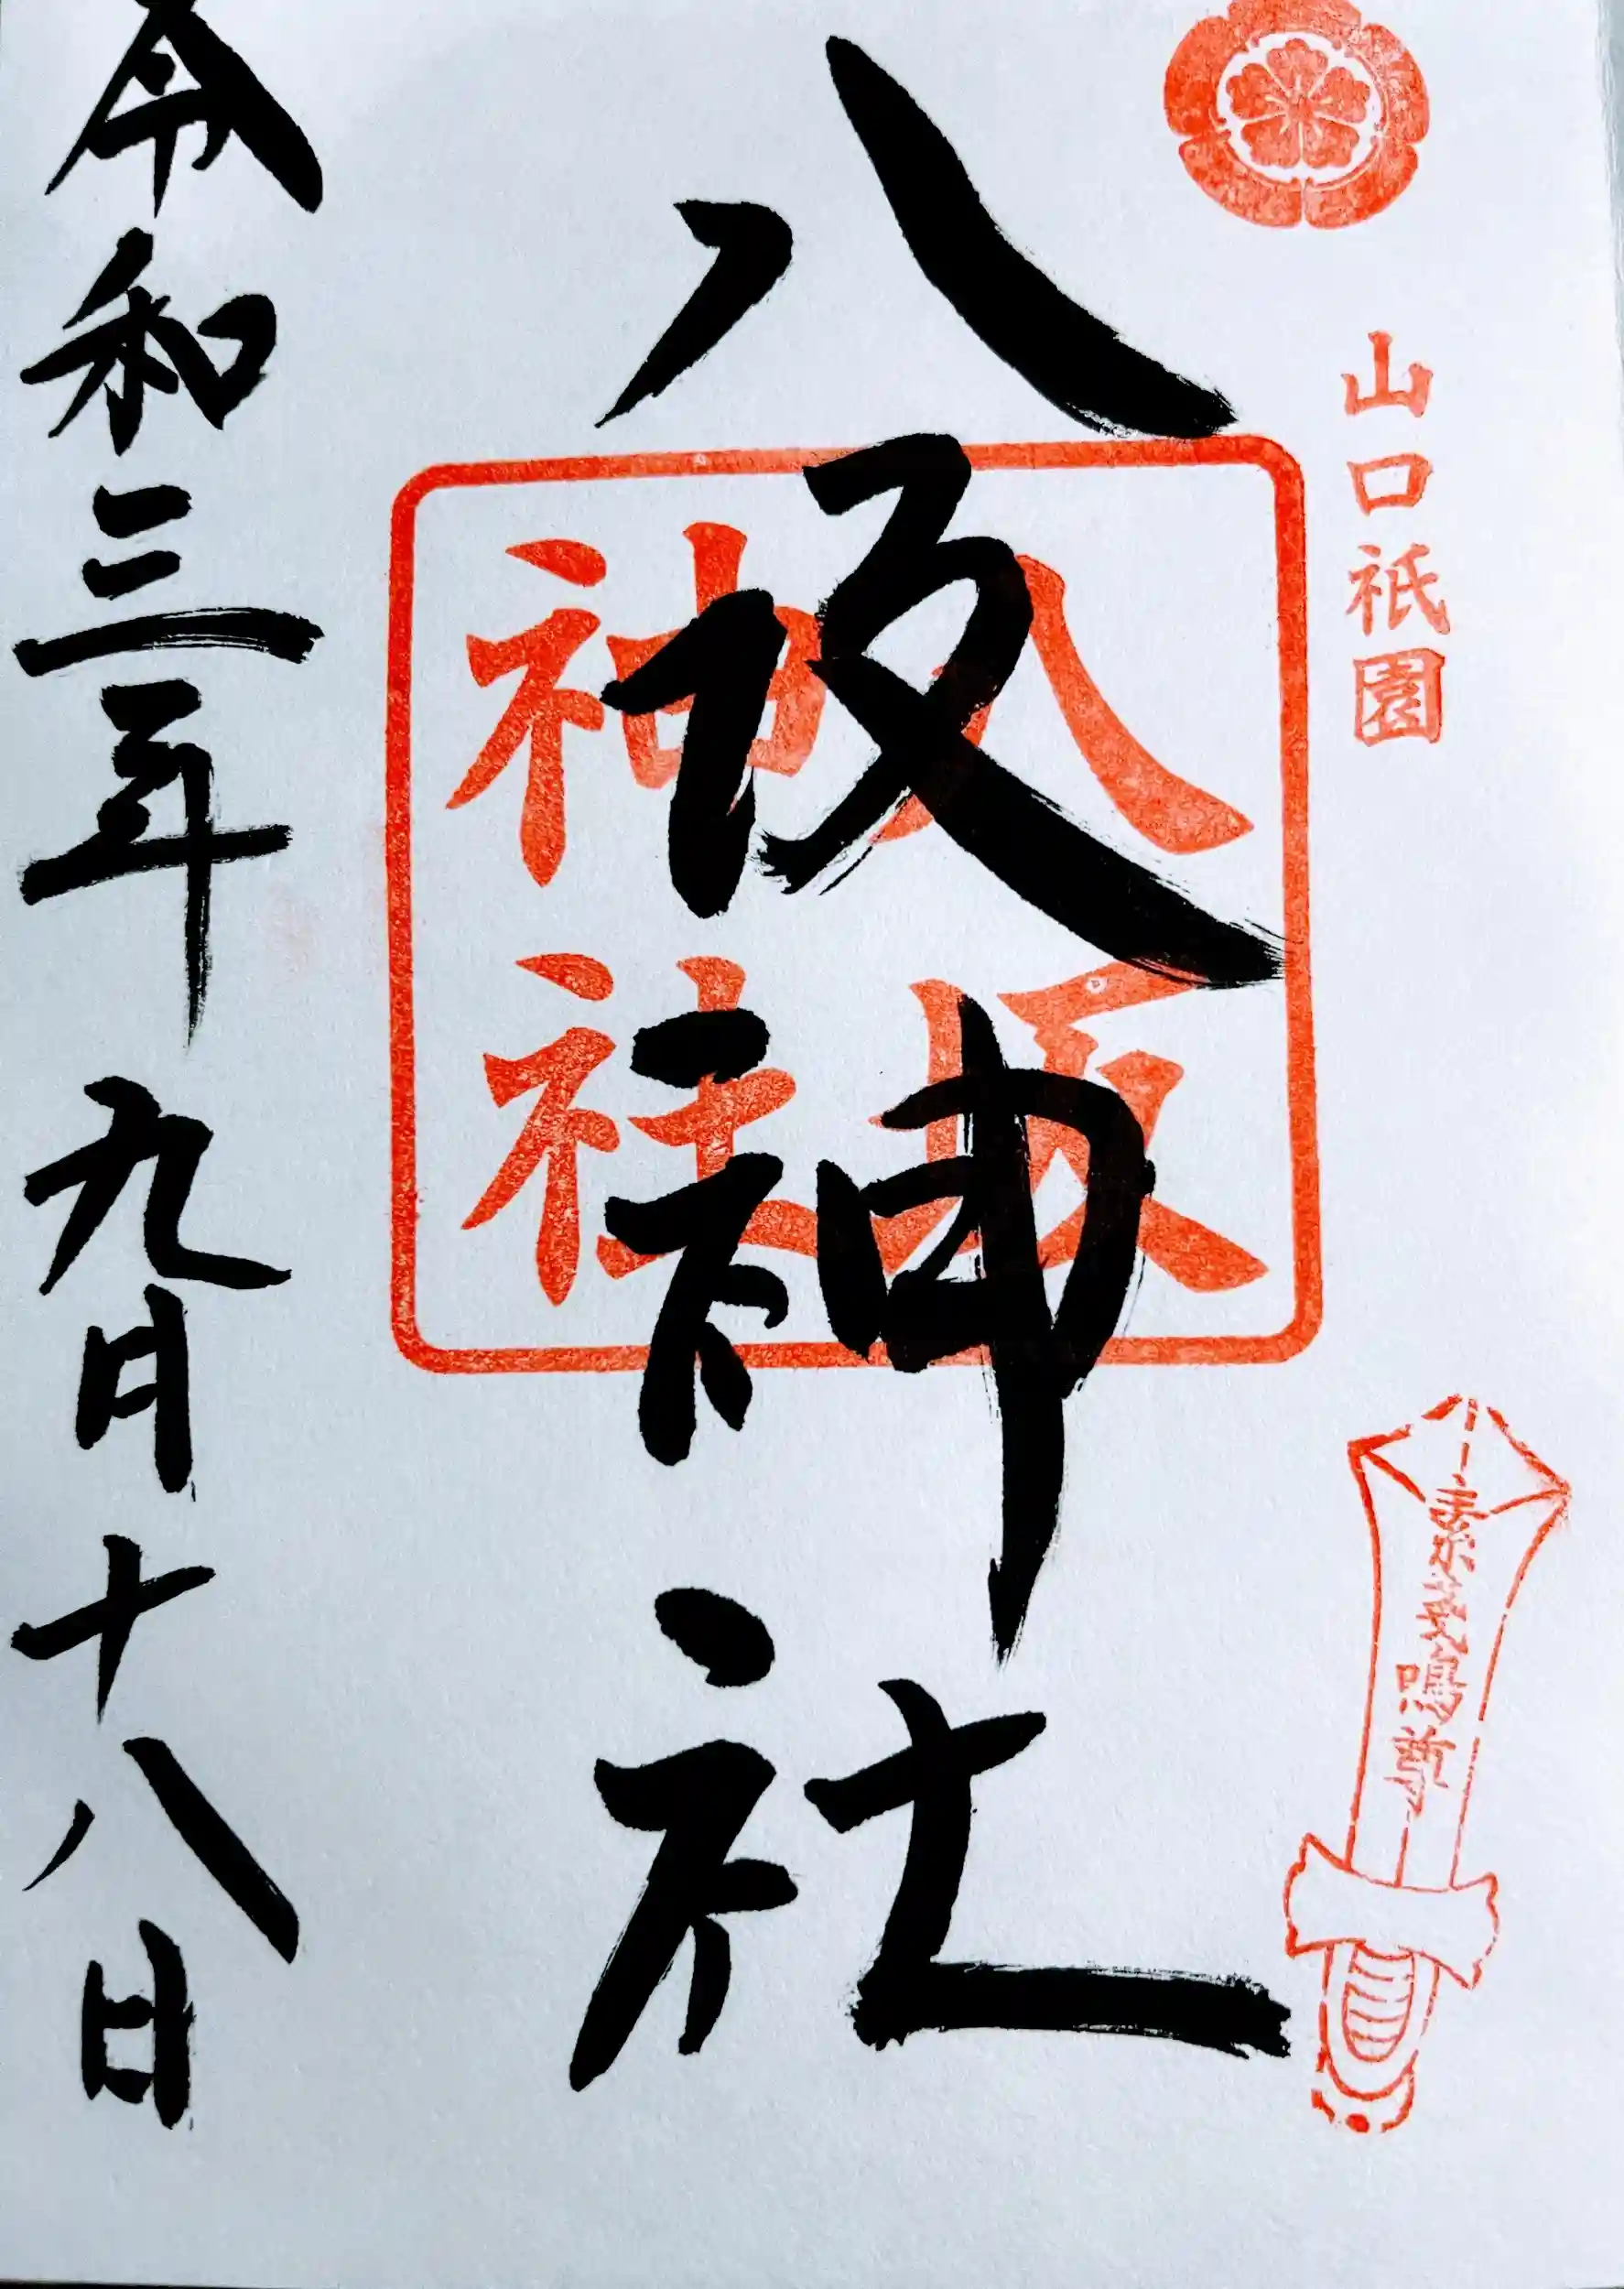 山口祇園
素戔嗚尊
八坂神社
八坂
神社
令和三年九月十八日